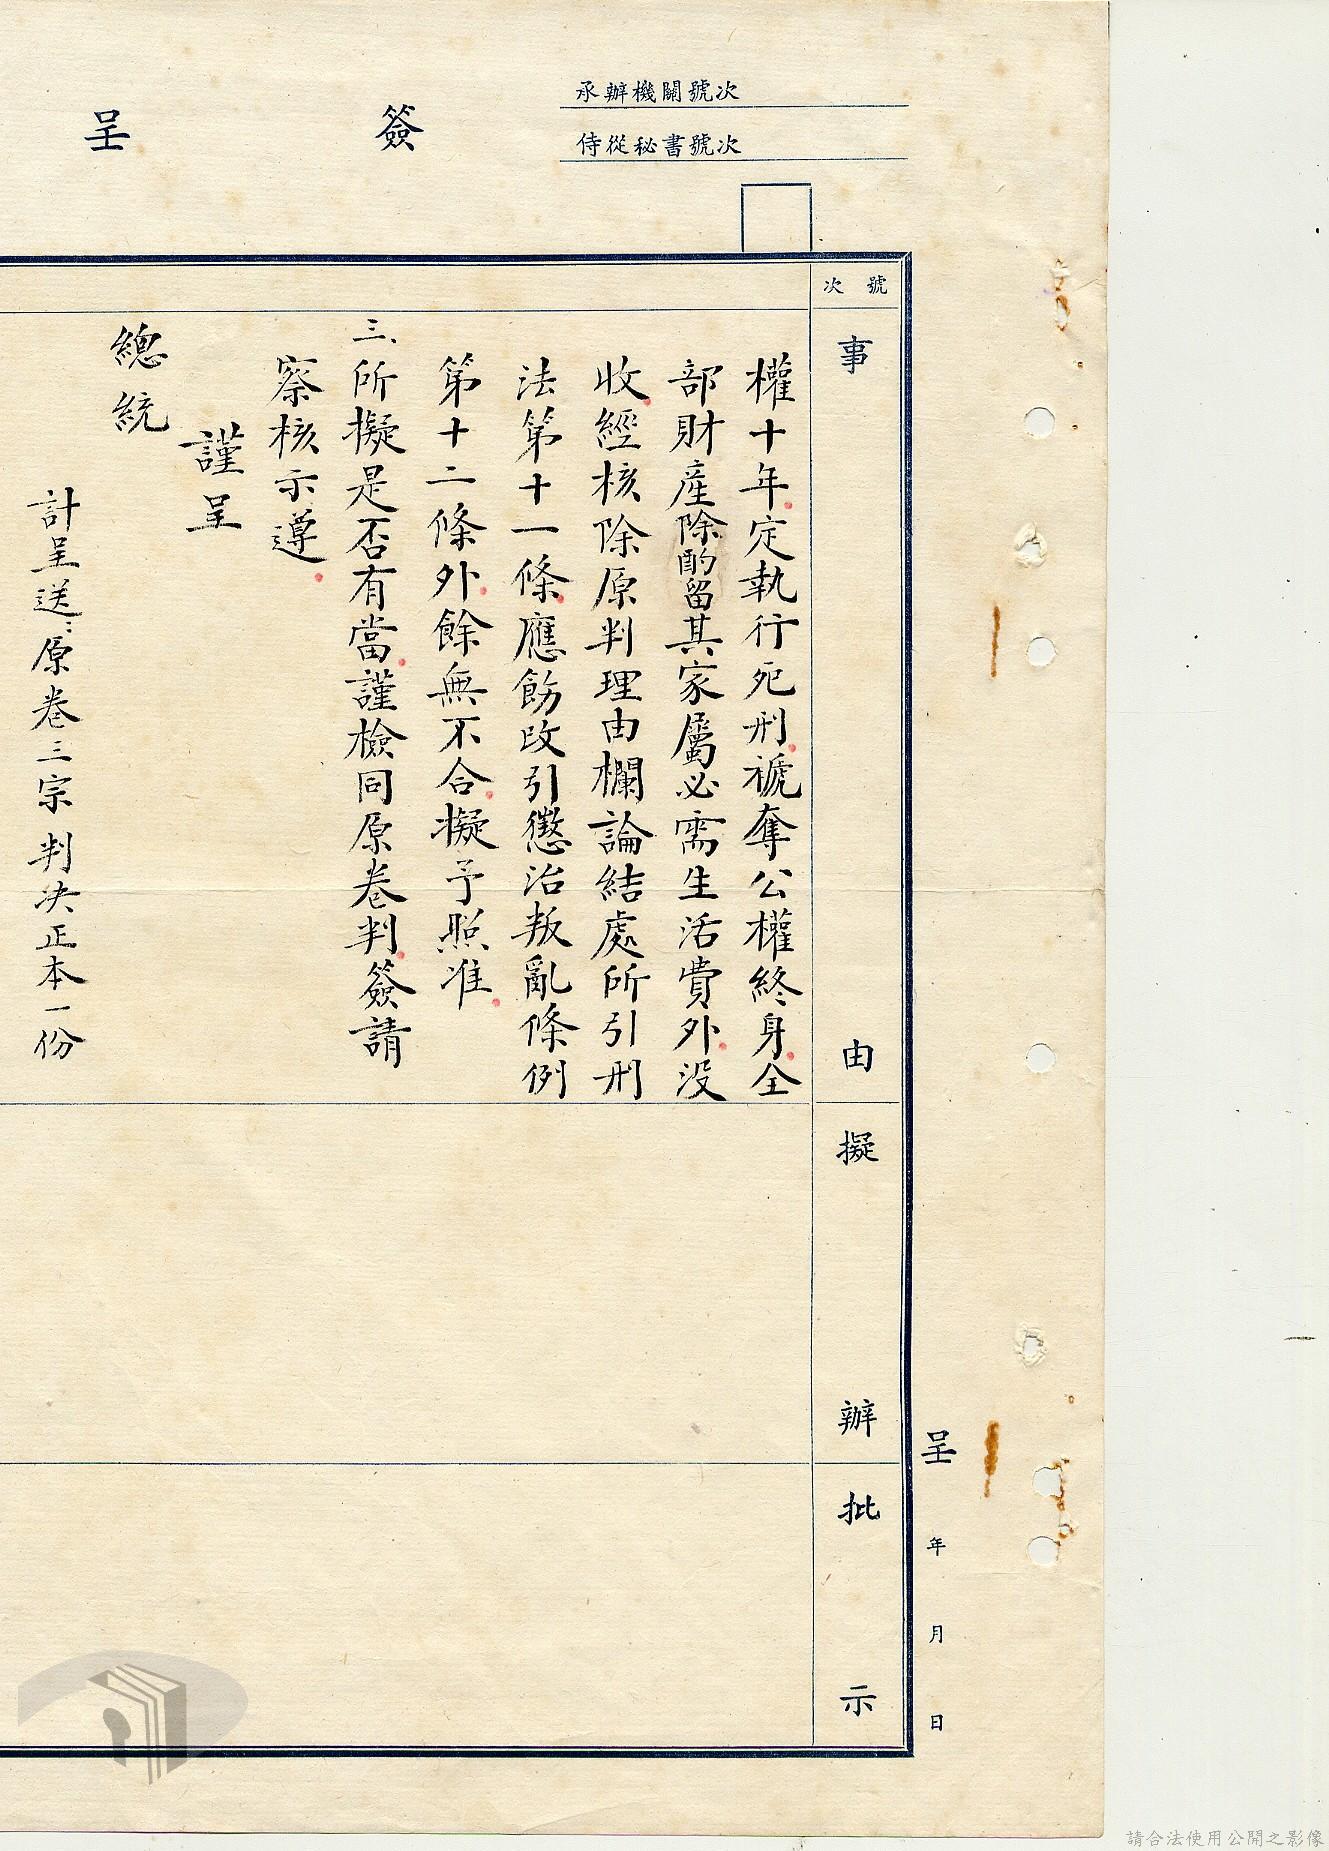 承辦機關號次
侍從秘書號次
簽呈
號次
事由
擬辦
批示
呈 年 月 日
權十年定執行死刑褫奪公權終身全
部財產除酌留其家屬必需生活費外沒
收經核除原判理由欄論結處所引刑
法第十一條應飭改引懲治叛亂條例
第十二條外餘無不合擬予照准
三、所擬是否有當謹檢同原卷判簽請
察核示遵
謹呈
總統
計呈送：原卷三宗判決正本一份
請合法使用公開之影像